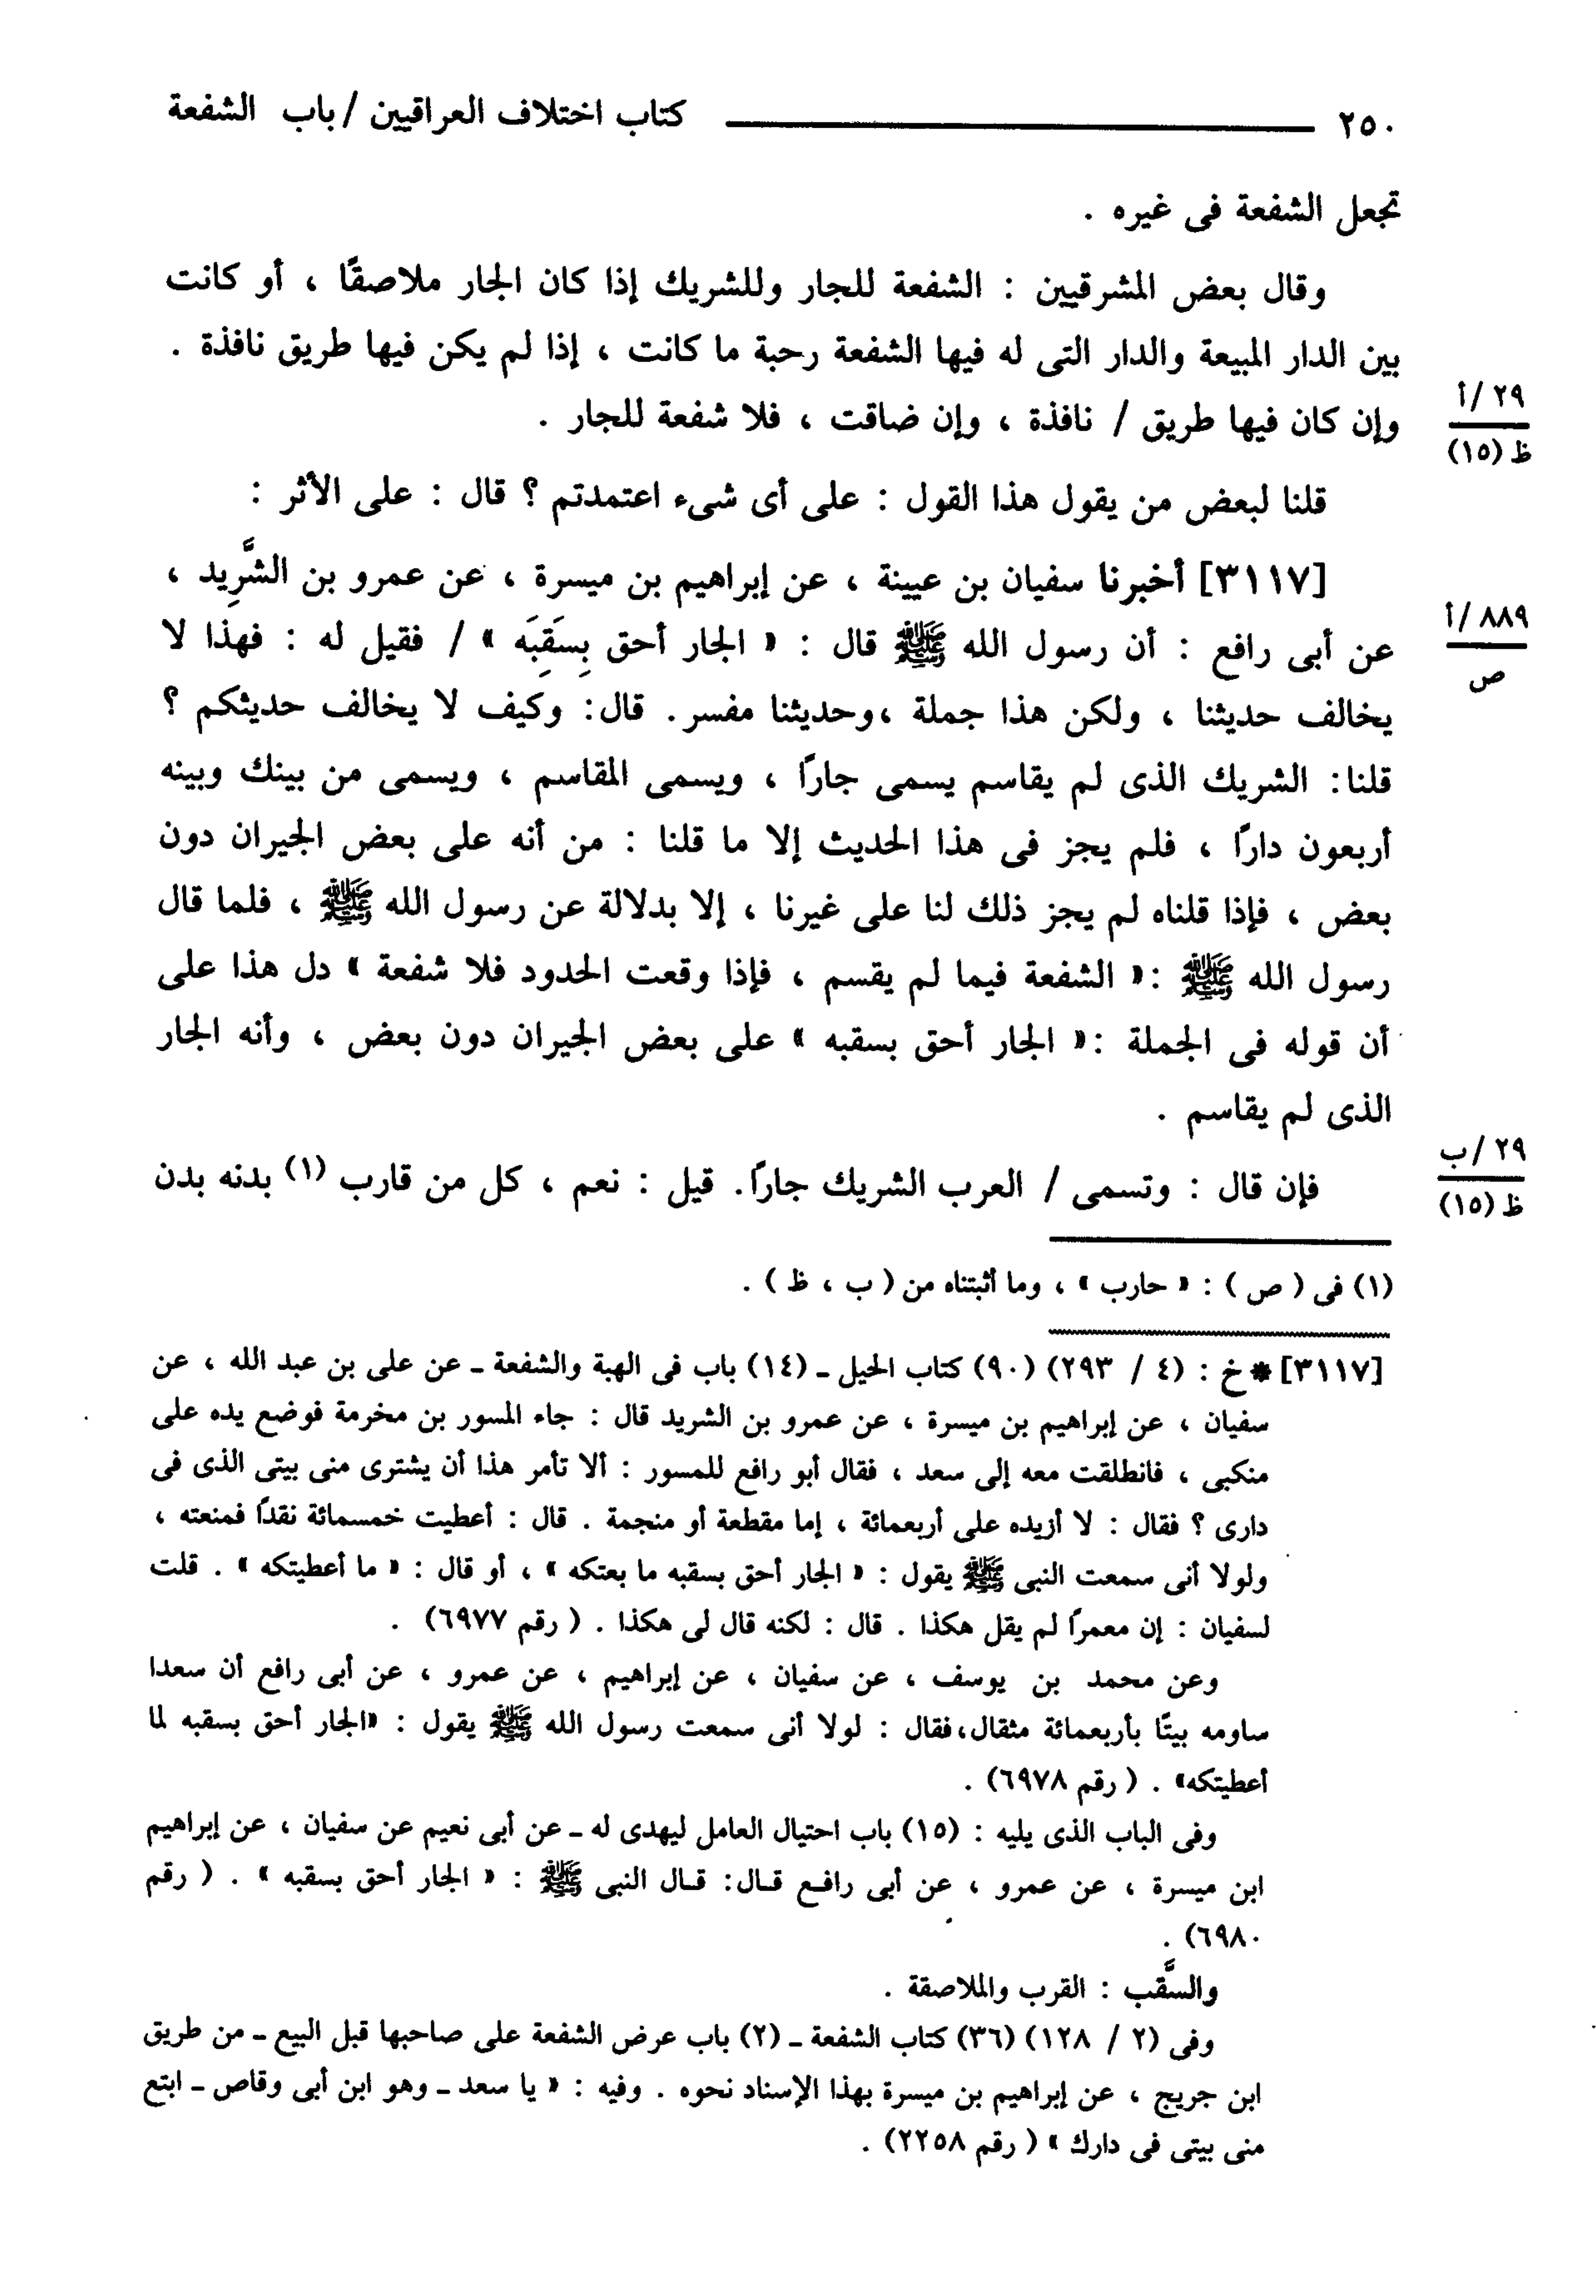 ٢٥٠ كتاب اختلاف العراقيين / باب الشفعة
تجعل الشفعة فى غيره .
وقال بعض المشرقيين : الشفعة للجار وللشريك إذا كان الجار ملاصقًا ، أو كانت
بين الدار المبيعة والدار التى له فيها الشفعة رحبة ما كانت ، إذا لم يكن فيها طريق نافذة .
وإن كان فيها طريق / نافذة ، وإن ضاقت ، فلا شفعة للجار .
٢٩/أ
ظ (١٥)
قلنا لبعض من يقول هذا القول : على أى شىء اعتمدتم ؟ قال : على الأثر :
[٣١١٧] أخبرنا سفيان بن عيينة ، عن إبراهيم بن ميسرة ، عن عمرو بن الشَّرِيد ،
عن أبى رافع : أن رسول الله ﷺ قال : « الجار أحق بِسَقِبَه » / فقيل له : فهذا لا
٨٨٩/أ
ص
يخالف حديثنا ، ولكن هذا جملة ،وحديثنا مفسر. قال: وكيف لا يخالف حديثكم ؟
قلنا: الشريك الذى لم يقاسم يسمى جارًا ، ويسمى المقاسم ، ويسمى من بينك وبينه
أربعون دارًا ، فلم يجز فى هذا الحديث إلا ما قلنا : من أنه على بعض الجيران دون
بعض ، فإذا قلناه لم يجز ذلك لنا على غيرنا ، إلا بدلالة عن رسول الله ﷺ ، فلما قال
رسول الله ﷺ :« الشفعة فيما لم يقسم ، فإذا وقعت الحدود فلا شفعة » دل هذا على
أن قوله فى الجملة :« الجار أحق بسقبه » على بعض الجيران دون بعض ، وأنه الجار
الذى لم يقاسم .
فإن قال : وتسمى / العرب الشريك جارًا. قيل : نعم ، كل من قارب (١) بدنه بدن
٢٩/ب
ظ (١٥)
(١) فى ( ص ) : « حارب » ، وما أثبتناه من ( ب ، ظ ) .
[٣١١٧] * خ : (٤ / ٢٩٣) (٩٠) كتاب الحيل ـ (١٤) باب فى الهبة والشفعة ـ عن على بن عبد الله ، عن
سفيان ، عن إبراهيم بن ميسرة ، عن عمرو بن الشريد قال : جاء المسور بن مخرمة فوضع يده على
منكبى ، فانطلقت معه إلى سعد ، فقال أبو رافع للمسور : ألا تأمر هذا أن يشترى منى بيتى الذى فى
دارى ؟ فقال : لا أزيده على أربعمائة ، إما مقطعة أو منجمة . قال : أعطيت خمسمائة نقدًا فمنعته ،
ولولا أنى سمعت النبى ﷺ يقول : « الجار أحق بسقبه ما بعتكه » ، أو قال : « ما أعطيتكه » . قلت
لسفيان : إن معمرًا لم يقل هكذا . قال : لكنه قال لى هكذا . ( رقم ٦٩٧٧) .
وعن محمد بن يوسف ، عن سفيان ، عن إبراهيم ، عن عمرو ، عن أبى رافع أن سعدا
ساومه بيتًا بأربعمائة مثقال،فقال : لولا أنى سمعت رسول الله ﷺ يقول : «الجار أحق بسقبه لما
أعطيتكه» . ( رقم ٦٩٧٨) .
وفى الباب الذى يليه : (١٥) باب احتيال العامل ليهدى له ـ عن أبى نعيم عن سفيان ، عن إبراهيم
ابن ميسرة ، عن عمرو ، عن أبى رافع قال: قال النبى ﷺ : « الجار أحق بسقبه » . ( رقم
٦٩٨٠) .
والسَّقب : القرب والملاصقة .
وفى (٢ / ١٢٨) (٣٦) كتاب الشفعة ـ (٢) باب عرض الشفعة على صاحبها قبل البيع ـ من طريق
ابن جريج ، عن إبراهيم بن ميسرة بهذا الإسناد نحوه . وفيه : « يا سعد ـ وهو ابن أبى وقاص ـ ابتع
منى بيتى فى دارك » ( رقم ٢٢٥٨) .